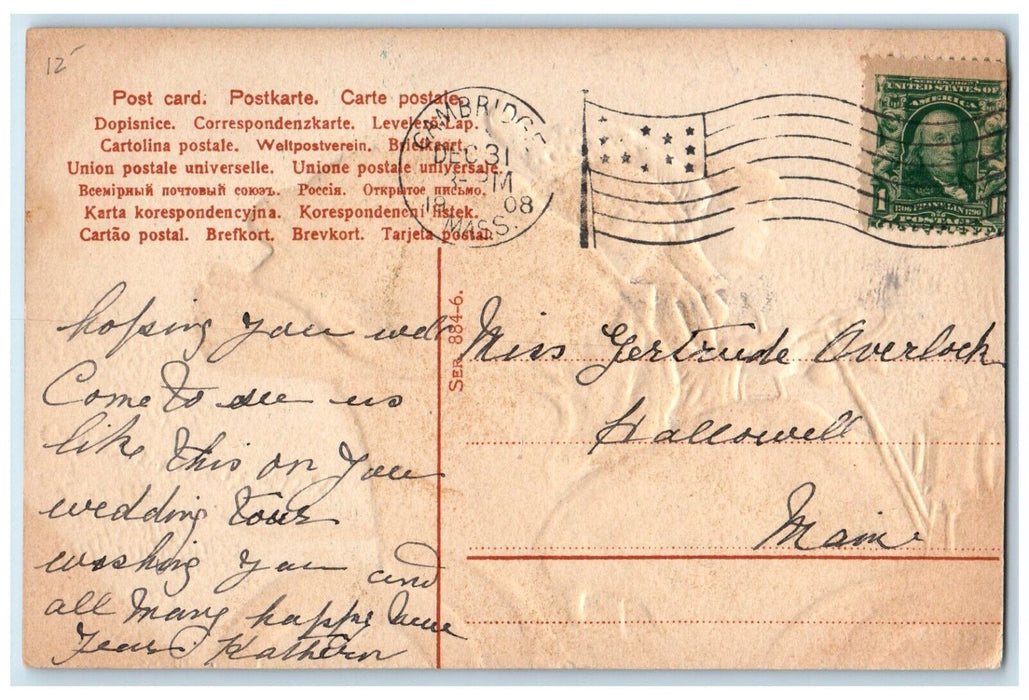 12
Post card. Postkarte. Carte postale.
Dopisnice. Correspondenzkarte. Levelező-Lap.
Cartolina postale. Weltpostverein. Briefkaart.
Union postale universelle. Unione postale universale.
Всемірный почтовый союзъ. Россія. Открытое письмо.
Karta korespondencyjna. Korespondencní listek.
Cartão postal. Brefkort. Brevkort. Tarjeta postal.
CAMBRIDGE
DEC 31
PM
08
MASS.
SERIES 1902
UNITED STATES OF
AMERICA
1706 FRANKLIN 1790
1 1
POSTAGE
SER. 884-6.
hoping you will
Come to see us
like this on you
wedding tour
wishing you and
all Many happy New
Years Kathern
Miss Gertrude Overlock
Hallowell
Maine